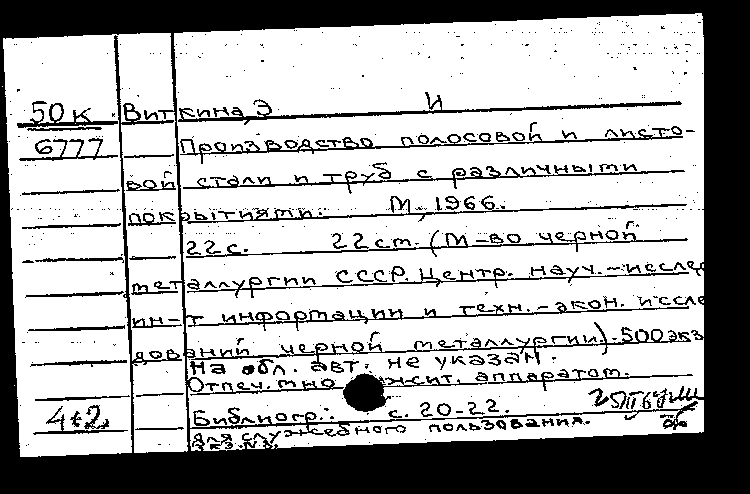 50к Виткина, Э И
6777 Производство полосовой и листо-
вой стали и труб с различными
покрытиями. М., 1966.
22с. 22 cm. (М-во черной
металлургии СССР. Центр. науч.-исслед
ин-т информации и техн.-экон. иссле
дований черной металлургии). 500 экз
На обл. авт. не указан.
Отпеч. мно жит. аппаратом.
4+2 Библиогр.: с. 20-22.
для служебного пользования.